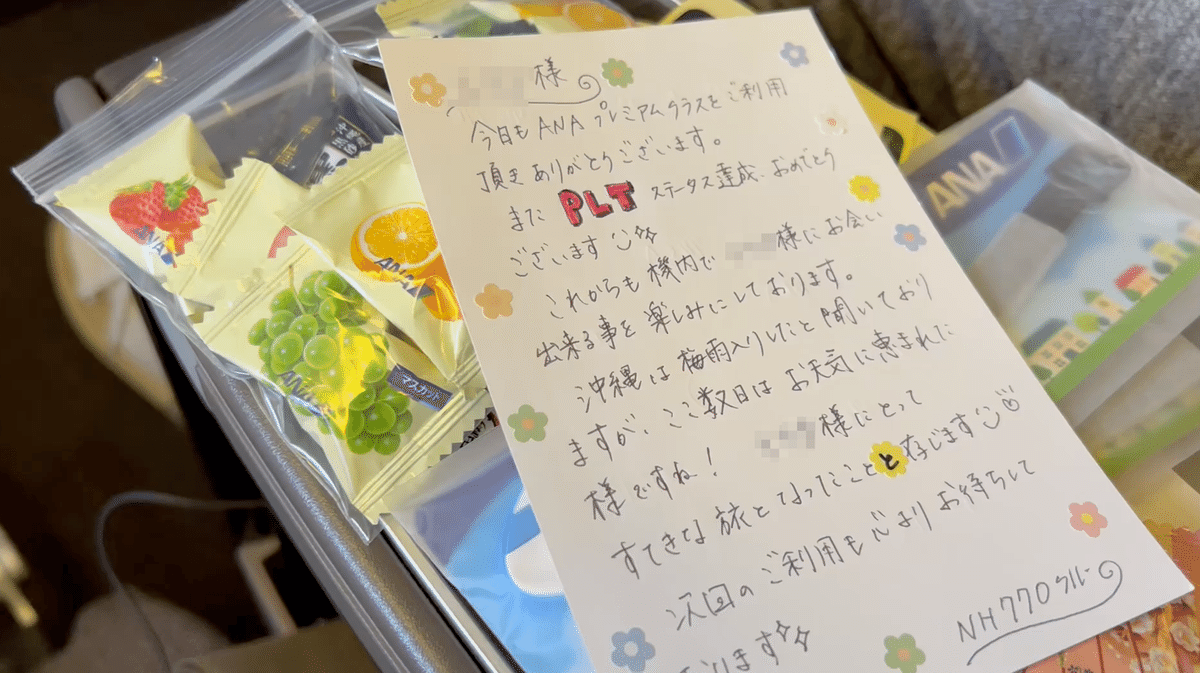 様
今日もANAプレミアムクラスをご利用
頂きありがとうございます。
また PLT ステータス達成、おめでとう
ございます
これからも機内で 様にお会い
出来る事を楽しみにしております。
沖縄は梅雨入りしたと聞いており
ますが、ここ数日はお天気に恵まれた
様ですね! 様にとって
すてきな旅となったことと存じます
次回のご利用も心よりお待ちして
おります
NH770クルー
ANA
ANA
ANA
マスカット
ANA